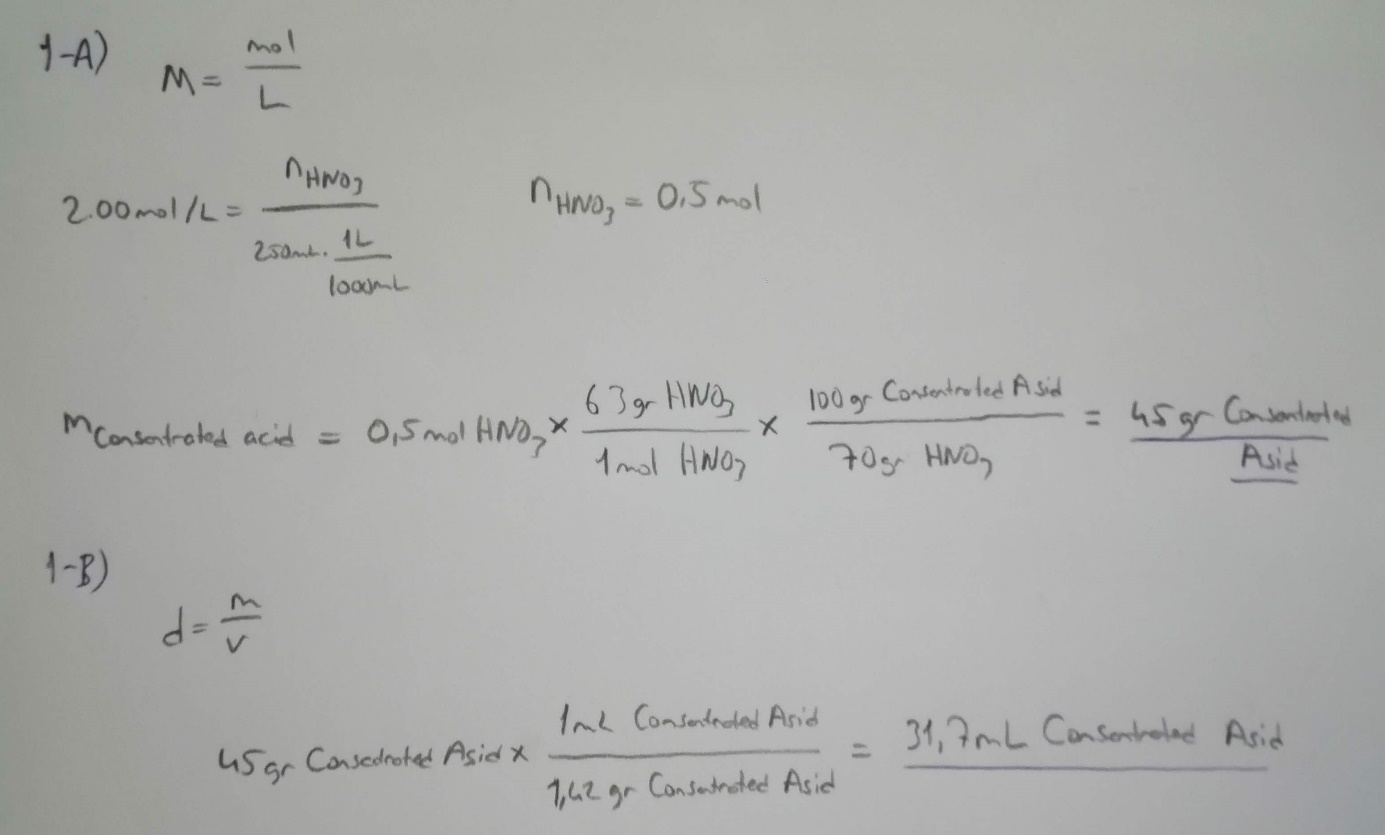 1-A) M = mol / L
2.00 mol/L = nHNO3 / 250mL. 1L / 1000mL
nHNO3 = 0,5 mol
mConsentrated acid = 0,5 mol HNO3 x 63 gr HNO3 / 1 mol HNO3 x 100 gr Consentrated Asid / 70 gr HNO3 = 45 gr Consentrated Asid
1-B)
d = m / v
45 gr Consedrated Asid x 1mL Consentrated Asid / 1,42 gr Consentrated Asid = 31,7 mL Consentrated Asid